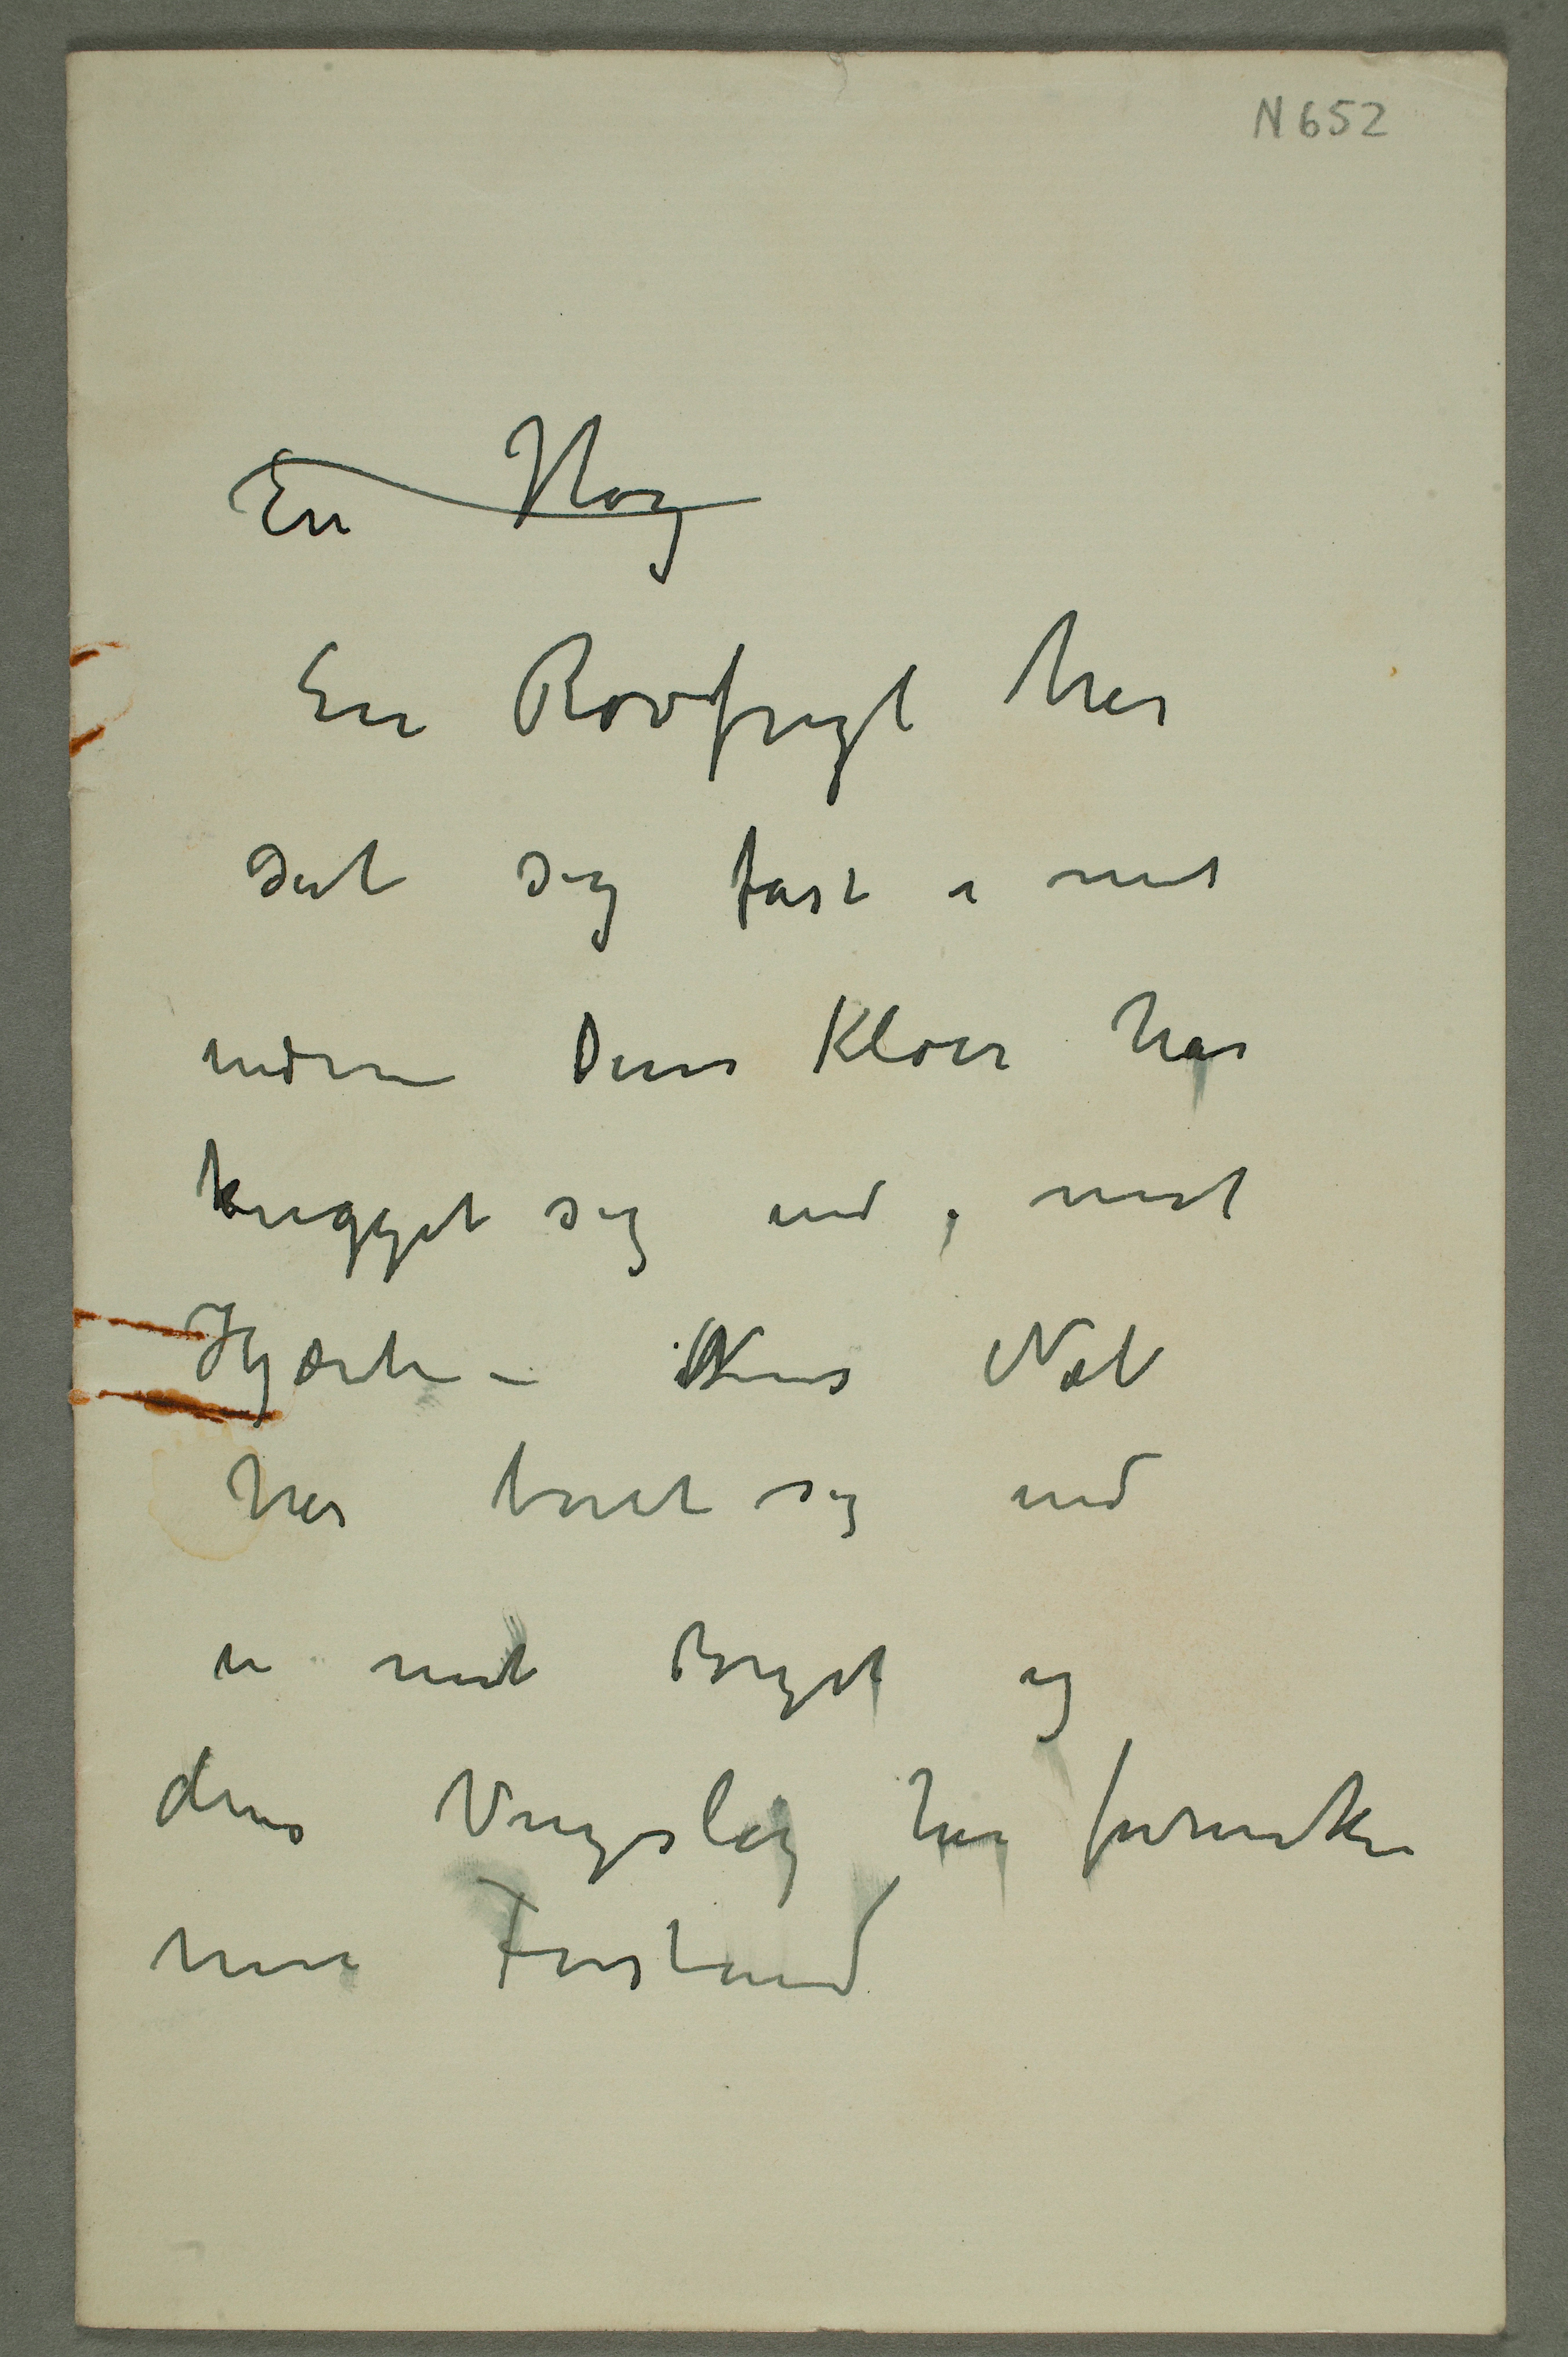 N 652
En Høg
En Rovfugl har
sat sig fast i mit
indre Dens Kløer har
hugget sig ind i mit
Hjærte – Dens Næb
har boret sig ind
i mit Bryst og
dens Vingslag har formørket
min Forstand